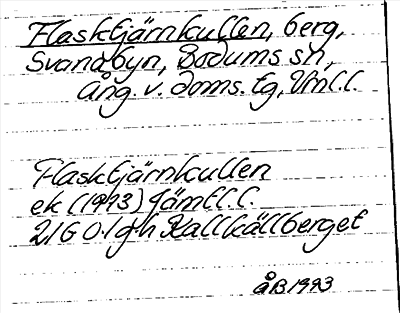 Flasktjärnkullen, berg,
Svanabyn, Bodums sn,
Ång. v. doms. tg, Vnl.l.
Flasktjärnkullen
ek (1993) Jämtl.l.
21G 0.1 g-h Kallkällberget
åB 1993